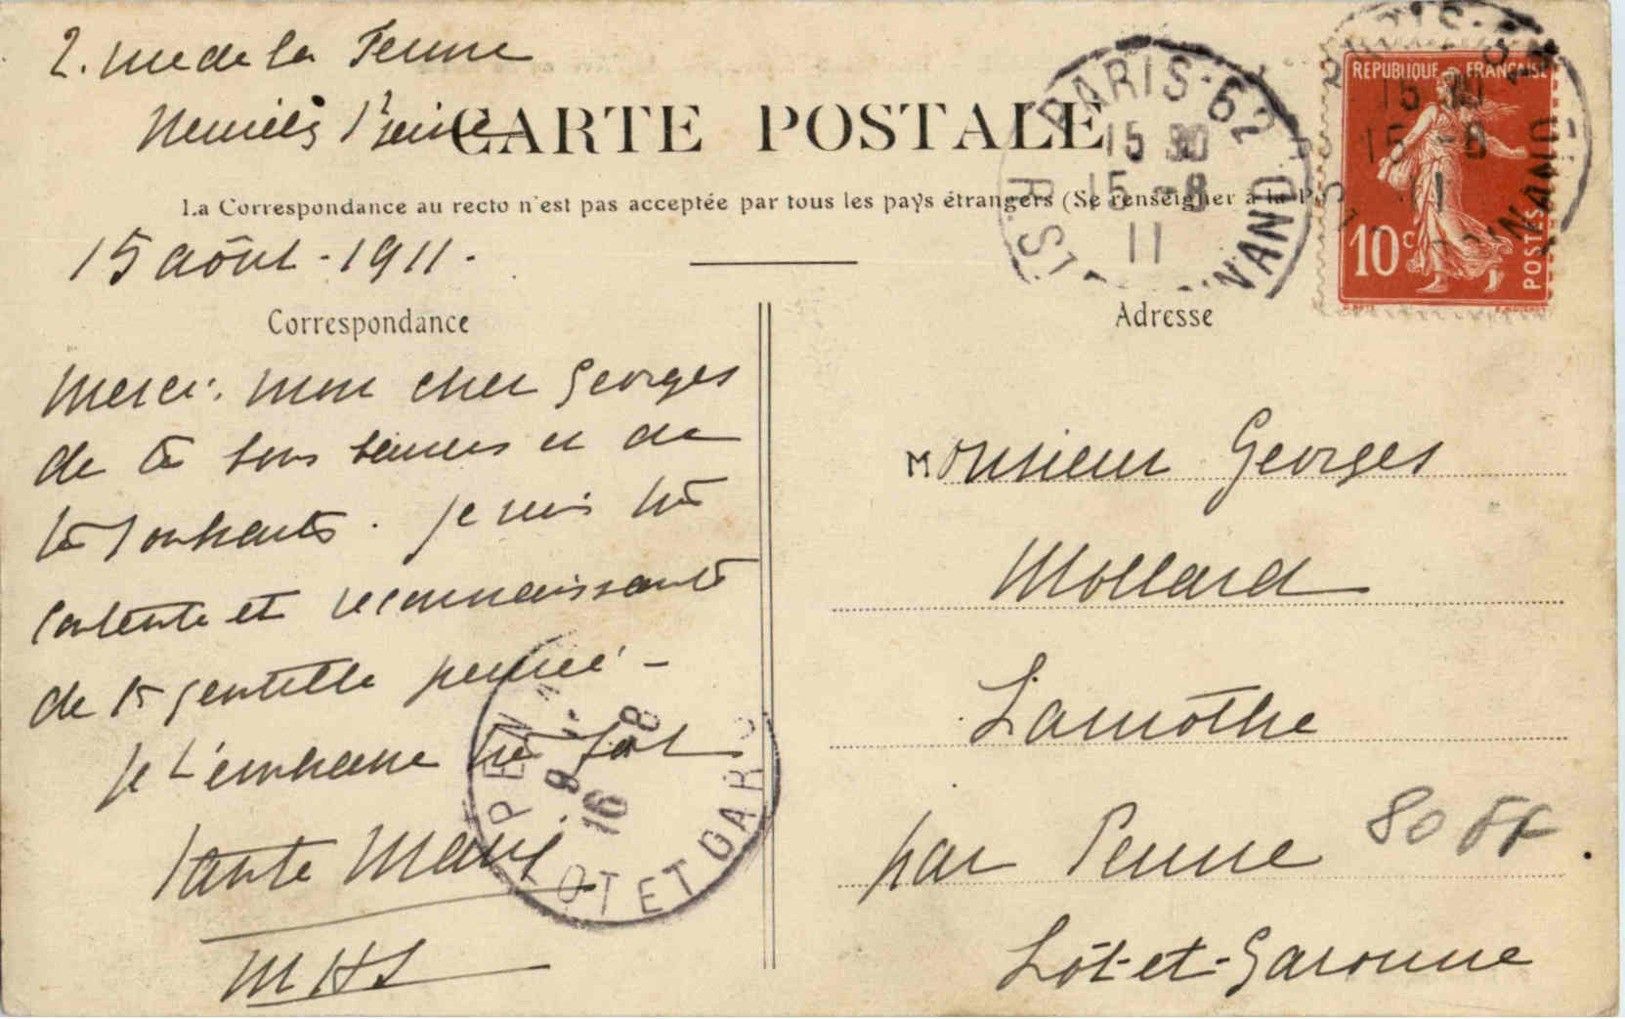 2. rue de la Ferme
Neuilly s/ Seine
CARTE POSTALE
La Correspondance au recto n'est pas acceptée par tous les pays étrangers (Se renseigner à la P
15 aôut - 1911 -
Correspondance
Merci, mon cher Georges
de ta bons et de
tes souhaits. Je suis très
contente et reconnaissante
de ta gentille pensée -
Je t'embrasse très fort
Tante Marie
MHS
PENNE
8
16 -8
LOT ET GAR
PARIS-62
15 30
15 -8
11
R. ST FERDINAND
REPUBLIQUE FRANÇAISE
10c
POSTES
PARIS-62
15 30
15 -8
11
Adresse
Monsieur Georges
Mollard
Lamothe
par Penne
80 FF
Lot-et-Garonne